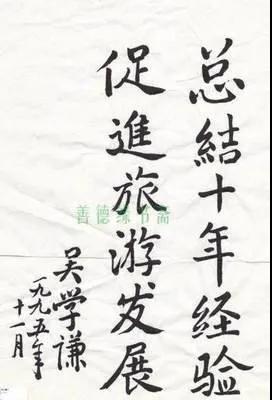 总結十年经验
促進旅游发展
吴学谦
一九九五年
十一月
善德缘书斋